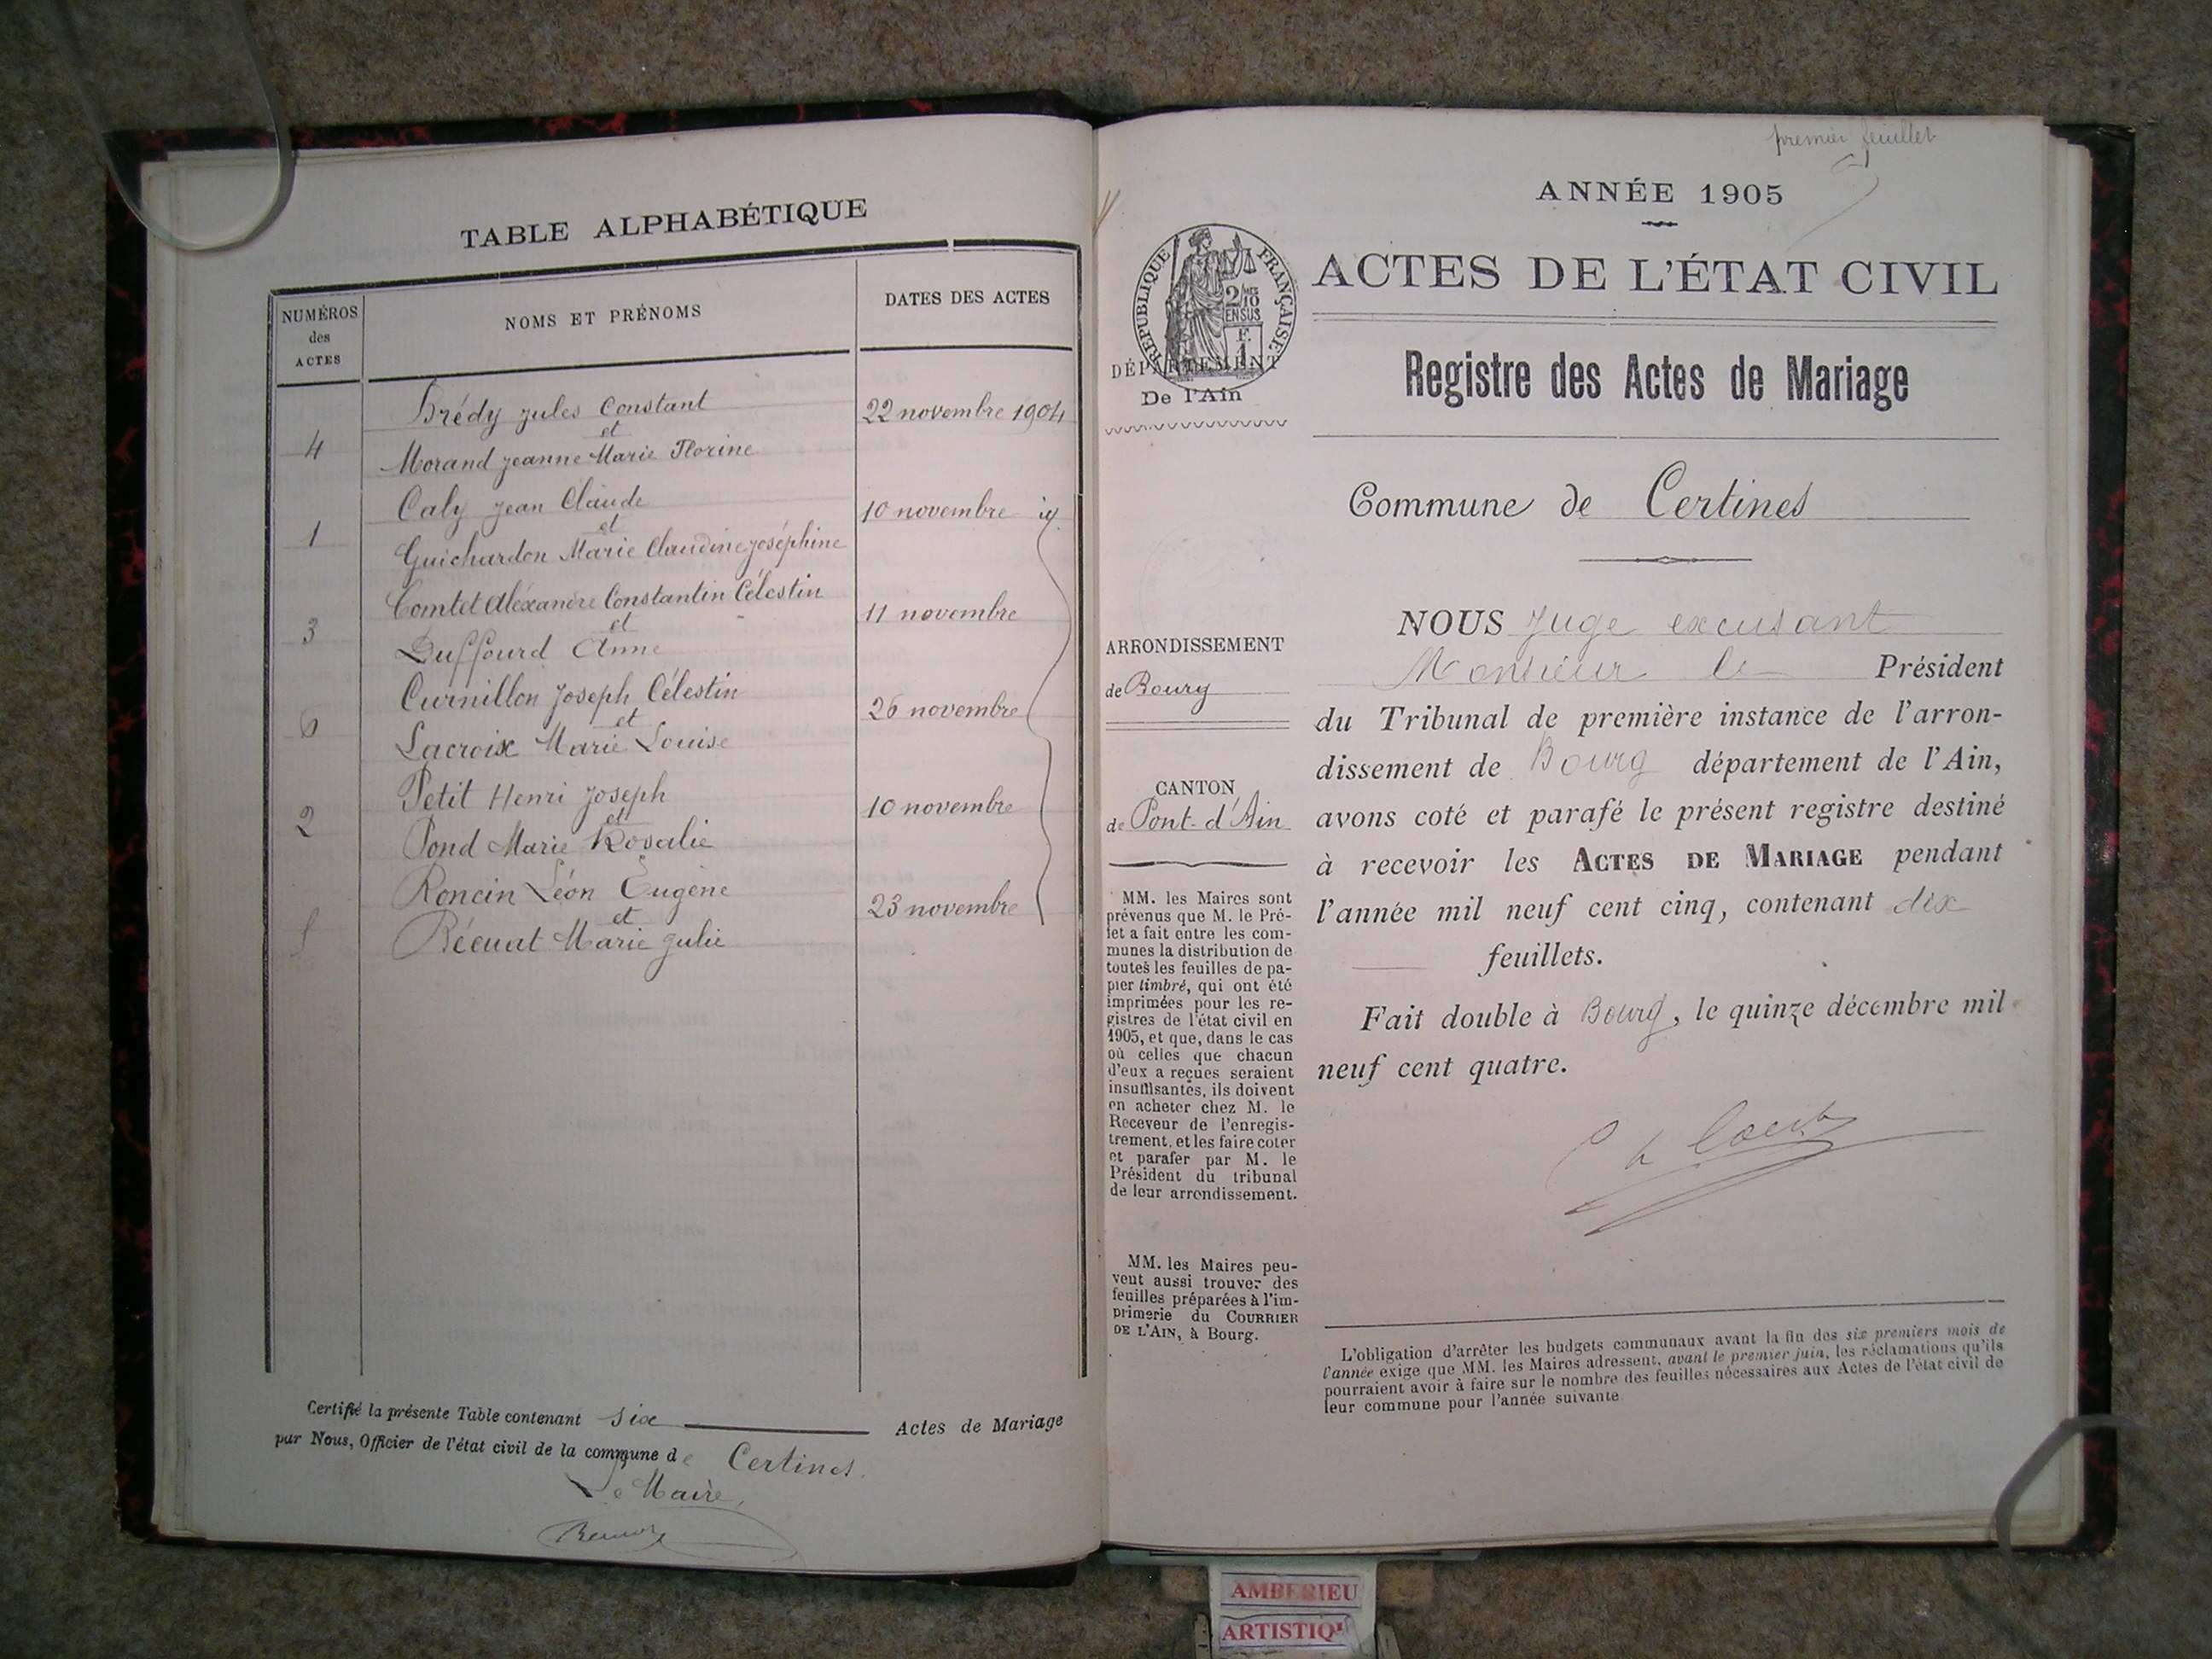 TABLE ALPHABÉTIQUE
NUMÉROS
des
ACTES
NOMS ET PRÉNOMS
DATES DES ACTES
Brédy Jules Constant
22 novembre 1904
et
4
Morand Jeanne Marie Florine
Caly Jean Claude
10 novembre
et
1
Guichardon Marie Claudine Joséphine
Comtet Aléxandre Constantin Célestin
11 novembre
et
3
Duffourd Anne
Curnillon Joseph Célestin
26 novembre
et
6
Lacroix Marie Louise
Petit Henri Joseph
10 novembre
et
2
Pond Marie Rosalie
Roncin Léon Eugène
23 novembre
et
5
Récuat Marie Julie
Certifié la présente Table contenant six Actes de Mariage
par Nous, Officier de l'état civil de la commune de Certines.
Le Maire,
premier feuillet
ANNÉE 1905
RÉPUBLIQUE FRANÇAISE
2/10 MES
EN SUS
F.
1
DÉPARTEMENT
De l'Ain
ACTES DE L'ÉTAT CIVIL
Registre des Actes de Mariage
Commune de Certines
ARRONDISSEMENT
de Bourg
CANTON
de Pont-d'Ain
MM. les Maires sont
prévenus que M. le Pré-
fet a fait entre les com-
munes la distribution de
toutes les feuilles de pa-
pier timbré, qui ont été
imprimées pour les re-
gistres de l'état civil en
1905, et que, dans le cas
où celles que chacun
d'eux a reçues seraient
insuffisantes, ils doivent
en acheter chez M. le
Receveur de l'enregis-
trement, et les faire coter
et parafer par M. le
Président du tribunal
de leur arrondissement.
MM. les Maires peu-
vent aussi trouver des
feuilles préparées à l'im-
primerie du COURRIER
DE L'AIN, à Bourg.
NOUS Juge excusant
Monsieur le Président
du Tribunal de première instance de l'arron-
dissement de Bourg département de l'Ain,
avons coté et parafé le présent registre destiné
à recevoir les ACTES DE MARIAGE pendant
l'année mil neuf cent cinq, contenant dix
feuillets.
Fait double à Bourg, le quinze décembre mil
neuf cent quatre.
L'obligation d'arrêter les budgets communaux avant la fin des six premiers mois de
l'année exige que MM. les Maires adressent, avant le premier juin, les réclamations qu'ils
pourraient avoir à faire sur le nombre des feuilles nécessaires aux Actes de l'état civil de
leur commune pour l'année suivante
AMBERIEU
ARTISTIQ